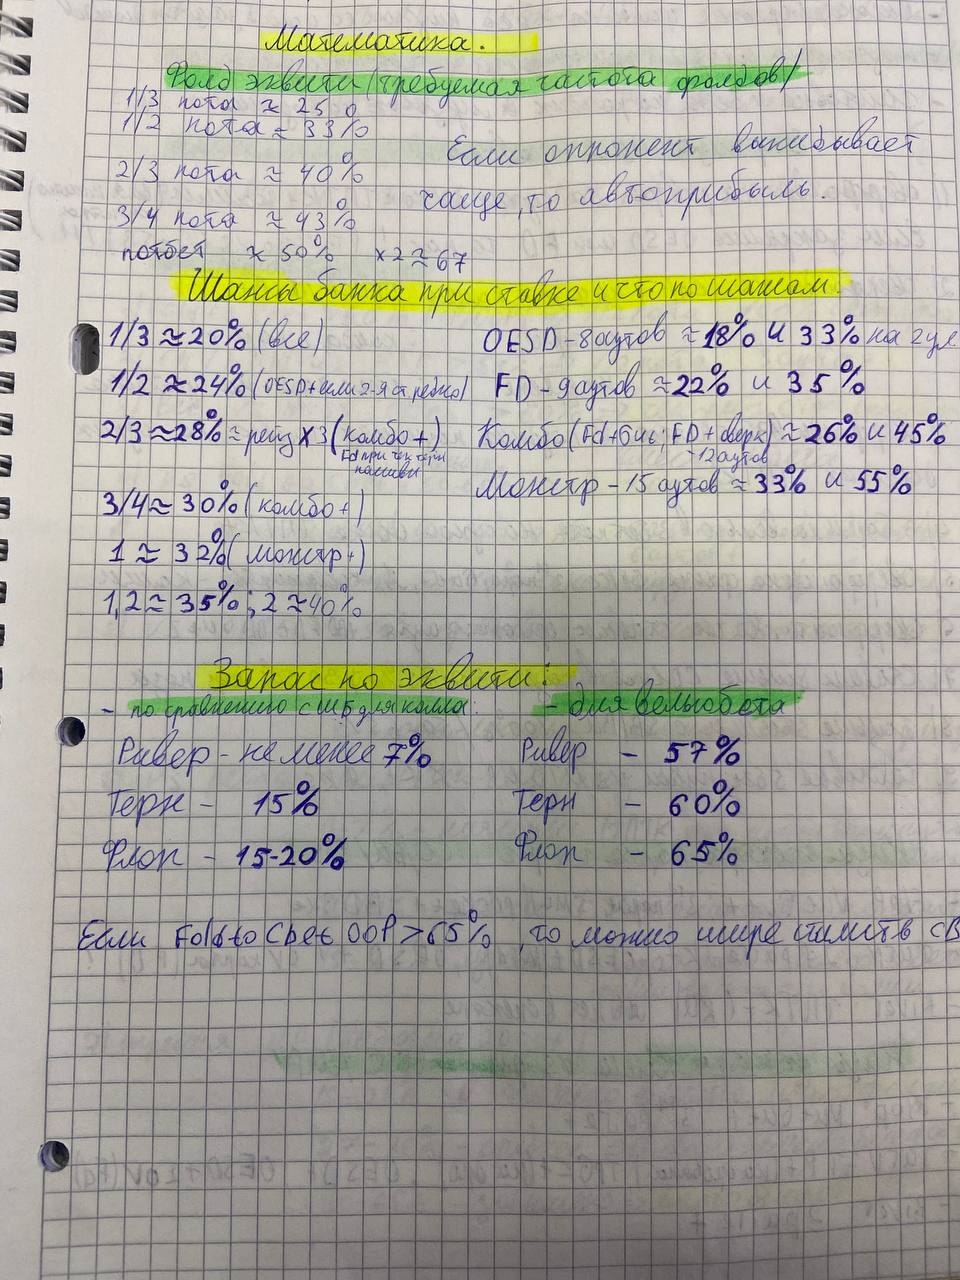 Математика.
Фолд эквити (требуемая частота фолдов)
1/3 пота ≈ 25%
1/2 пота ≈ 33%
Если опронент выкибывает
2/3 пота ≈ 40%
чаще, то автоприбыль.
3/4 пота ≈ 43%
потбет ≈ 50% x2 ≈ 67
Шансы банка при ставке и что по шансам.
1/3 ≈ 20% (все)
OESD - 8 аутов ≈ 18% и 33% на 2 ул
1/2 ≈ 24% (OESD+ или 2-я ст ребно)
FD - 9 аутов ≈ 22% и 35%
2/3 ≈ 28% ≈ рейз x3 (комбо+)
Fd при
пассиви
Комбо (Fd+ ; FD + оверк) ≈ 26% и 45%
~12 аутов
Монстр - 15 аутов ≈ 33% и 55%
3/4 ≈ 30% (комбо+)
1 ≈ 32% (монстр+)
1,2 ≈ 35%; 2 ≈ 40%
Запас по эквити:
- по сравнению с ШБ для колла:
- для вельюбета
Ривер - не менее 7%
Ривер - 57%
Терн - 15%
Терн - 60%
Флоп - 15-20%
Флоп - 65%
Если Fold to Cbet OOP > 65%, то можно шире ставить CB